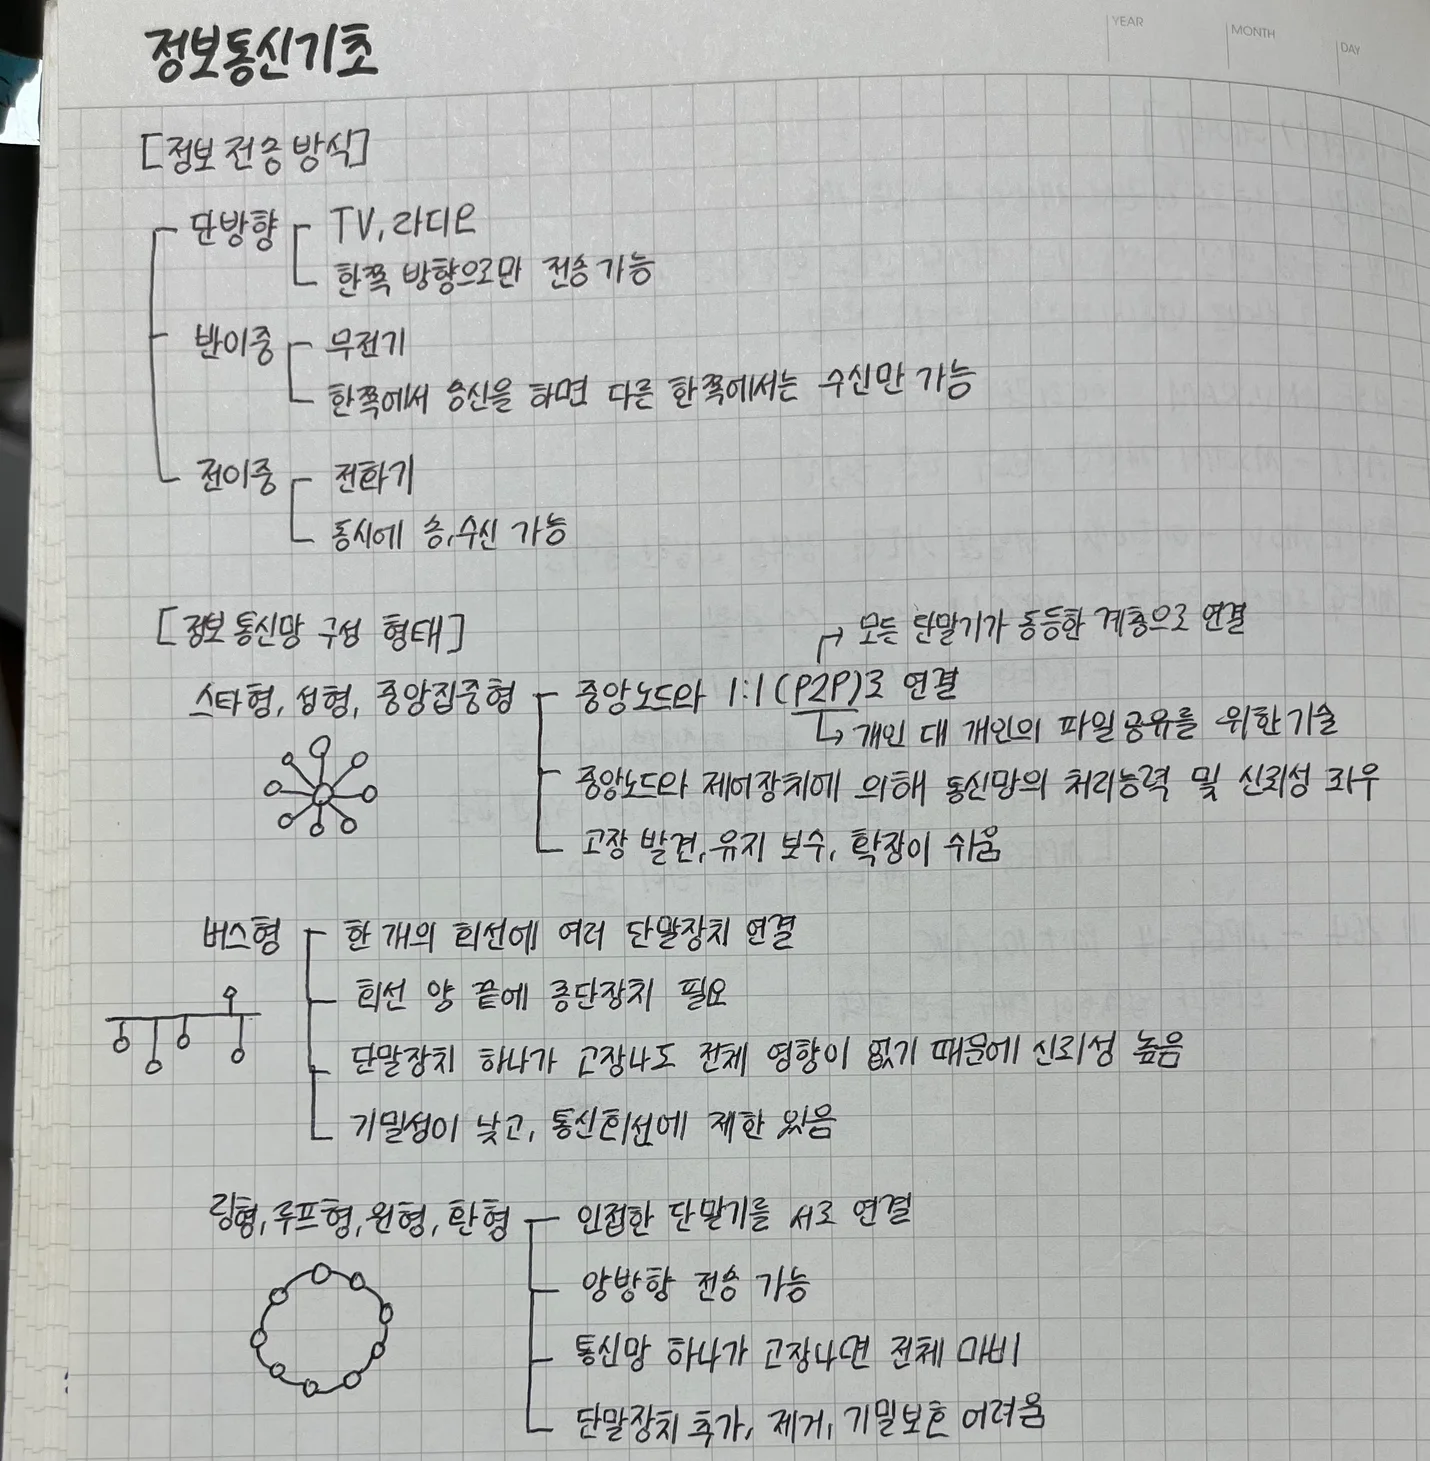 YEAR MONTH DAY
정보통신기초
[정보 전송 방식]
단방향 TV, 라디오
한쪽 방향으로만 전송 가능
반이중 무전기
한쪽에서 송신을 하면 다른 한쪽에서는 수신만 가능
전이중 전화기
동시에 송,수신 가능
[정보 통신망 구성 형태]
모든 단말기가 동등한 계층으로 연결
스타형, 성형, 중앙집중형 중앙노드와 1:1 (P2P)로 연결
개인 대 개인의 파일공유를 위한 기술
중앙노드와 제어장치에 의해 통신망의 처리능력 및 신뢰성 좌우
고장 발견, 유지 보수, 확장이 쉬움
버스형 한 개의 회선에 여러 단말장치 연결
회선 양 끝에 종단장치 필요
단말장치 하나가 고장나도 전체 영향이 없기 때문에 신뢰성 높음
기밀성이 낮고, 통신회선에 제한 있음
링형, 루프형, 원형, 환형 인접한 단말기를 서로 연결
양방향 전송 가능
통신망 하나가 고장나면 전체 마비
단말장치 추가, 제거, 기밀보호 어려움